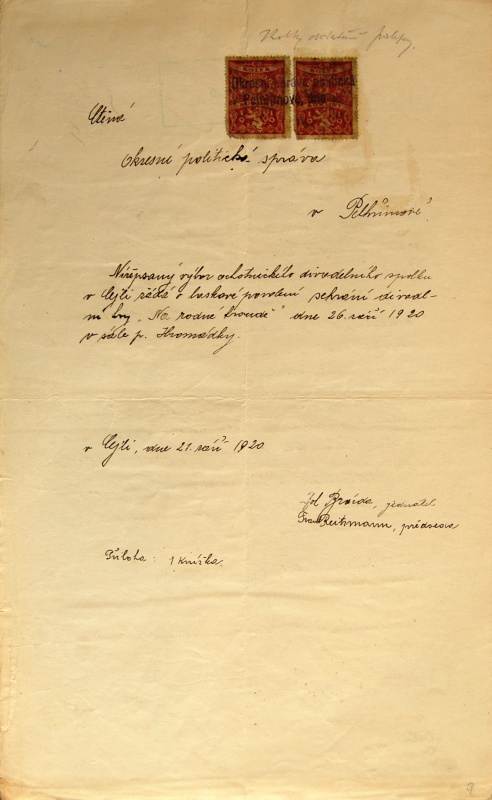 KOLEK KOLEK
Okresní správa politická
v Pelhřimově, dne
Ctěná
Okresní politická správa
v Pelhřimově
Nížepsaný výbor ochotnického divadelního spolku
v Cejli žádá o laskavé povolení sehrání divadel-
ní hry „Na rodné hroudě" dne 26. září 1920
v sále p. Hromádky.
v Cejli, dne 21. září 1920.
jednatel
Frant. Reitmann, předseda
Příloha: 1 knížka.
9